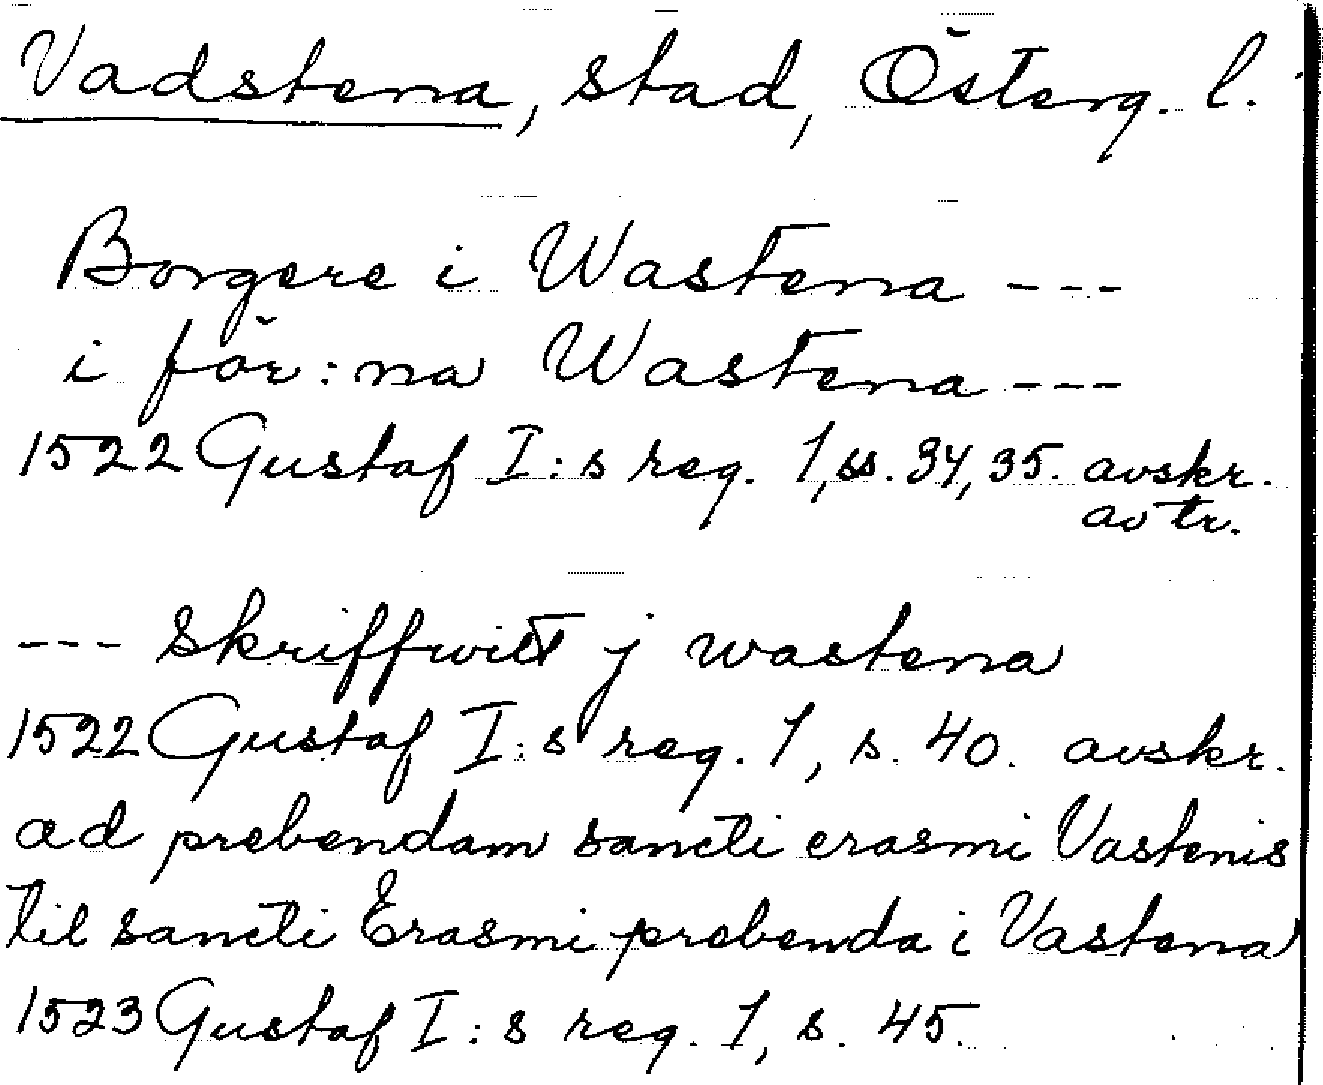 Vadstena, stad, Österg. l.
Borgere i Wastena ---
i för:na Wastena ---
1522 Gustaf I:s reg. 1, ss. 34, 35. avskr.
av tr.
--- Skriffwit j wastena
1522 Gustaf I:s reg. 1, s. 40. avskr.
ad prebendam sancti erasmi Vastenis
til sancti Erasmi prebenda i Vastena
1523 Gustaf I:s reg. 1, s. 45.